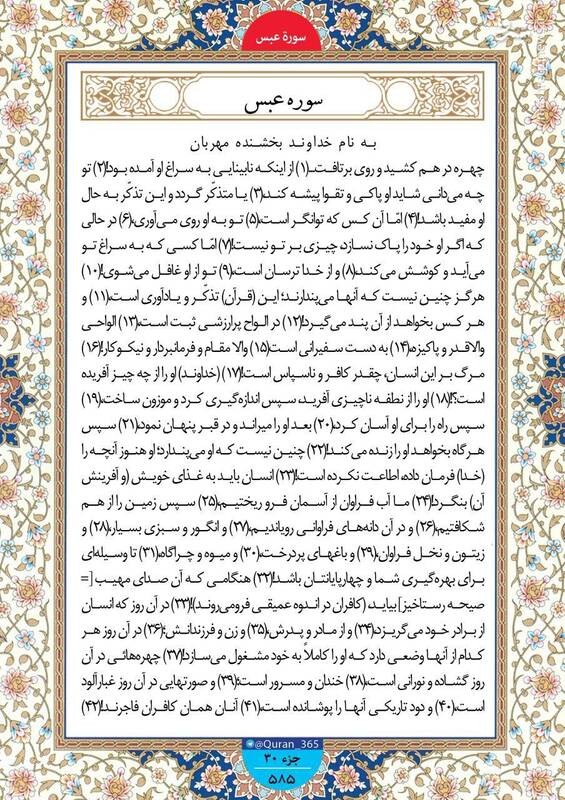 سورة عبس
سوره عبس
به نام خداوند بخشنده مهربان
چهره در هم کشید و روی برتافت..(۱) از اینکه نابینایی به سراغ او آمده بود!(۲) تو
چه می‌دانی شاید او پاکی و تقوا پیشه کند،(۳) یا متذکّر گردد و این تذکّر به حال
او مفید باشد!(۴) امّا آن کس که توانگر است،(۵) تو به او روی می‌آوری،(۶) در حالی
که اگر او خود را پاک نسازد، چیزی بر تو نیست!(۷) امّا کسی که به سراغ تو
می‌آید و کوشش می‌کند،(۸) و از خدا ترسان است،(۹) تو از او غافل می‌شوی!(۱۰)
هرگز چنین نیست که آنها می‌پندارند؛ این (قرآن) تذکّر و یادآوری است،(۱۱) و
هر کس بخواهد از آن پند می‌گیرد!(۱۲) در الواح پرارزشی ثبت است،(۱۳) الواحی
والاقدر و پاکیزه،(۱۴) به دست سفیرانی است(۱۵) والا مقام و فرمانبردار و نیکوکار!(۱۶)
مرگ بر این انسان، چقدر کافر و ناسپاس است!(۱۷) (خداوند) او را از چه چیز آفریده
است؟!(۱۸) او را از نطفه ناچیزی آفرید، سپس اندازه‌گیری کرد و موزون ساخت،(۱۹)
سپس راه را برای او آسان کرد،(۲۰) بعد او را میراند و در قبر پنهان نمود،(۲۱) سپس
هرگاه بخواهد او را زنده می‌کند!(۲۲) چنین نیست که او می‌پندارد؛ او هنوز آنچه را
(خدا) فرمان داده، اطاعت نکرده است!(۲۳) انسان باید به غذای خویش (و آفرینش
آن) بنگرد!(۲۴) ما آب فراوان از آسمان فرو ریختیم،(۲۵) سپس زمین را از هم
شکافتیم،(۲۶) و در آن دانه‌های فراوانی رویاندیم،(۲۷) و انگور و سبزی بسیار،(۲۸) و
زیتون و نخل فراوان،(۲۹) و باغهای پردرخت،(۳۰) و میوه و چراگاه،(۳۱) تا وسیله‌ای
برای بهره‌گیری شما و چهارپایانتان باشد!(۳۲) هنگامی که آن صدای مهیب [=
صیحه رستاخیز] بیاید، (کافران در اندوه عمیقی فرومی‌روند)!(۳۳) در آن روز که انسان
از برادر خود می‌گریزد،(۳۴) و از مادر و پدرش،(۳۵) و زن و فرزندانش؛(۳۶) در آن روز هر
کدام از آنها وضعی دارد که او را کاملاً به خود مشغول می‌سازد!(۳۷) چهره‌هائی در آن
روز گشاده و نورانی است،(۳۸) خندان و مسرور است؛(۳۹) و صورتهایی در آن روز غبارآلود
است،(۴۰) و دود تاریکی آنها را پوشانده است،(۴۱) آنان همان کافران فاجرند!(۴۲)
@Quran_365
جزء ۳۰
۵۸۵